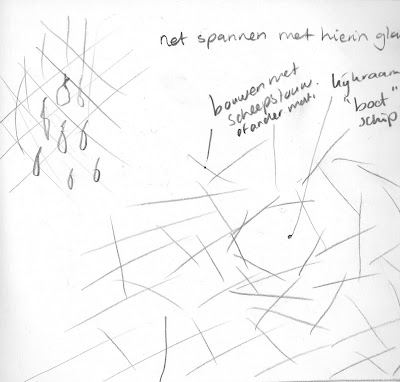 net spannen met hierin
bouwen met
scheepstouw.
of ander mat.
kijkraam
"boot"
schip